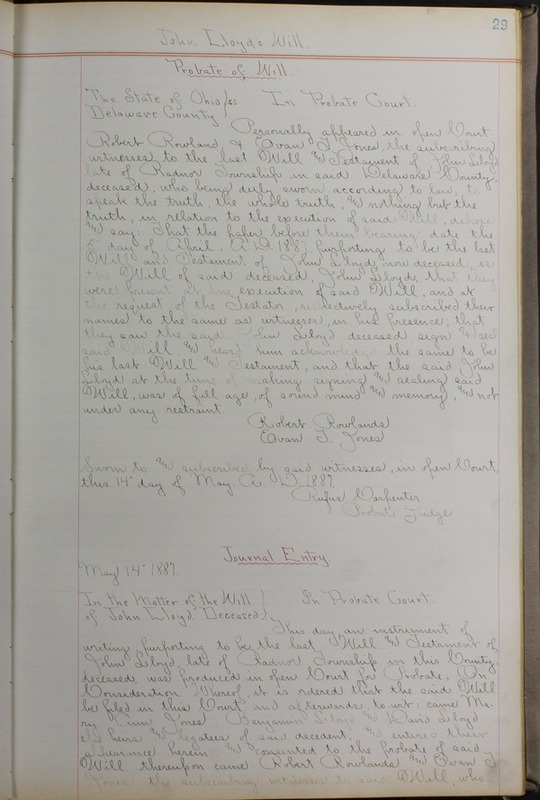 29
John Lloyd's Will.
Probate of Will.
The State of Ohio } ss In Probate Court.
Delaware County
Personally appeared in open Court
Robert Rowland, & Evan T. Jones, the subscribing
witnesses to the last Will and Testament of John Lloyd
late of Radnor Township in said Delaware County,
deceased, who being duly sworn according to law, to
speak the truth, the whole truth, and nothing but the
truth, in relation to the execution of said Will, depose
and say: That the paper before them bearing date the
5" day of April, A. D. 1887 purporting to be the last
Will and Testament of John Lloyd, now deceased, is
the Will of said deceased, John Lloyd, that they
were present at the execution of said Will, and at
the request of the Testator, respectively subscribed their
names to the same as witnesses, in his presence, that
they saw the said John Lloyd deceased sign and seal
said Will, and heard him acknowledge the same to be
his last Will and Testament, and that the said John
Lloyd at the time of making signing and sealing said
Will, was of full age, of sound mind and memory, and not
under any restraint.
Robert Rowlands
Evan T. Jones
Sworn to and subscribed by said witnesses, in open Court,
this 14" day of May. A. D. 1887.
Rufus Carpenter
Probate Judge
Journal Entry
May 14" 1887.
In the Matter of the Will } In Probate Court.
of John Lloyd Deceased
This day, an instrument of
writing purporting to be the last Will and Testament of
John Lloyd, late of Radnor Township in this County,
deceased, was produced in open Court for Probate. On
Consideration Whereof, it is ordered that the said Will
be filed in this Court and afterwards, to wit: came Ma-
ry Ann Jones Benjamin Lloyd and David Lloyd
the heirs and legatees of said decedent, and entered their
appearance herein and consented to the probate of said
Will thereupon came Robert Rowlands and Evan T
Jones the subscribing witnesses to said Will, who